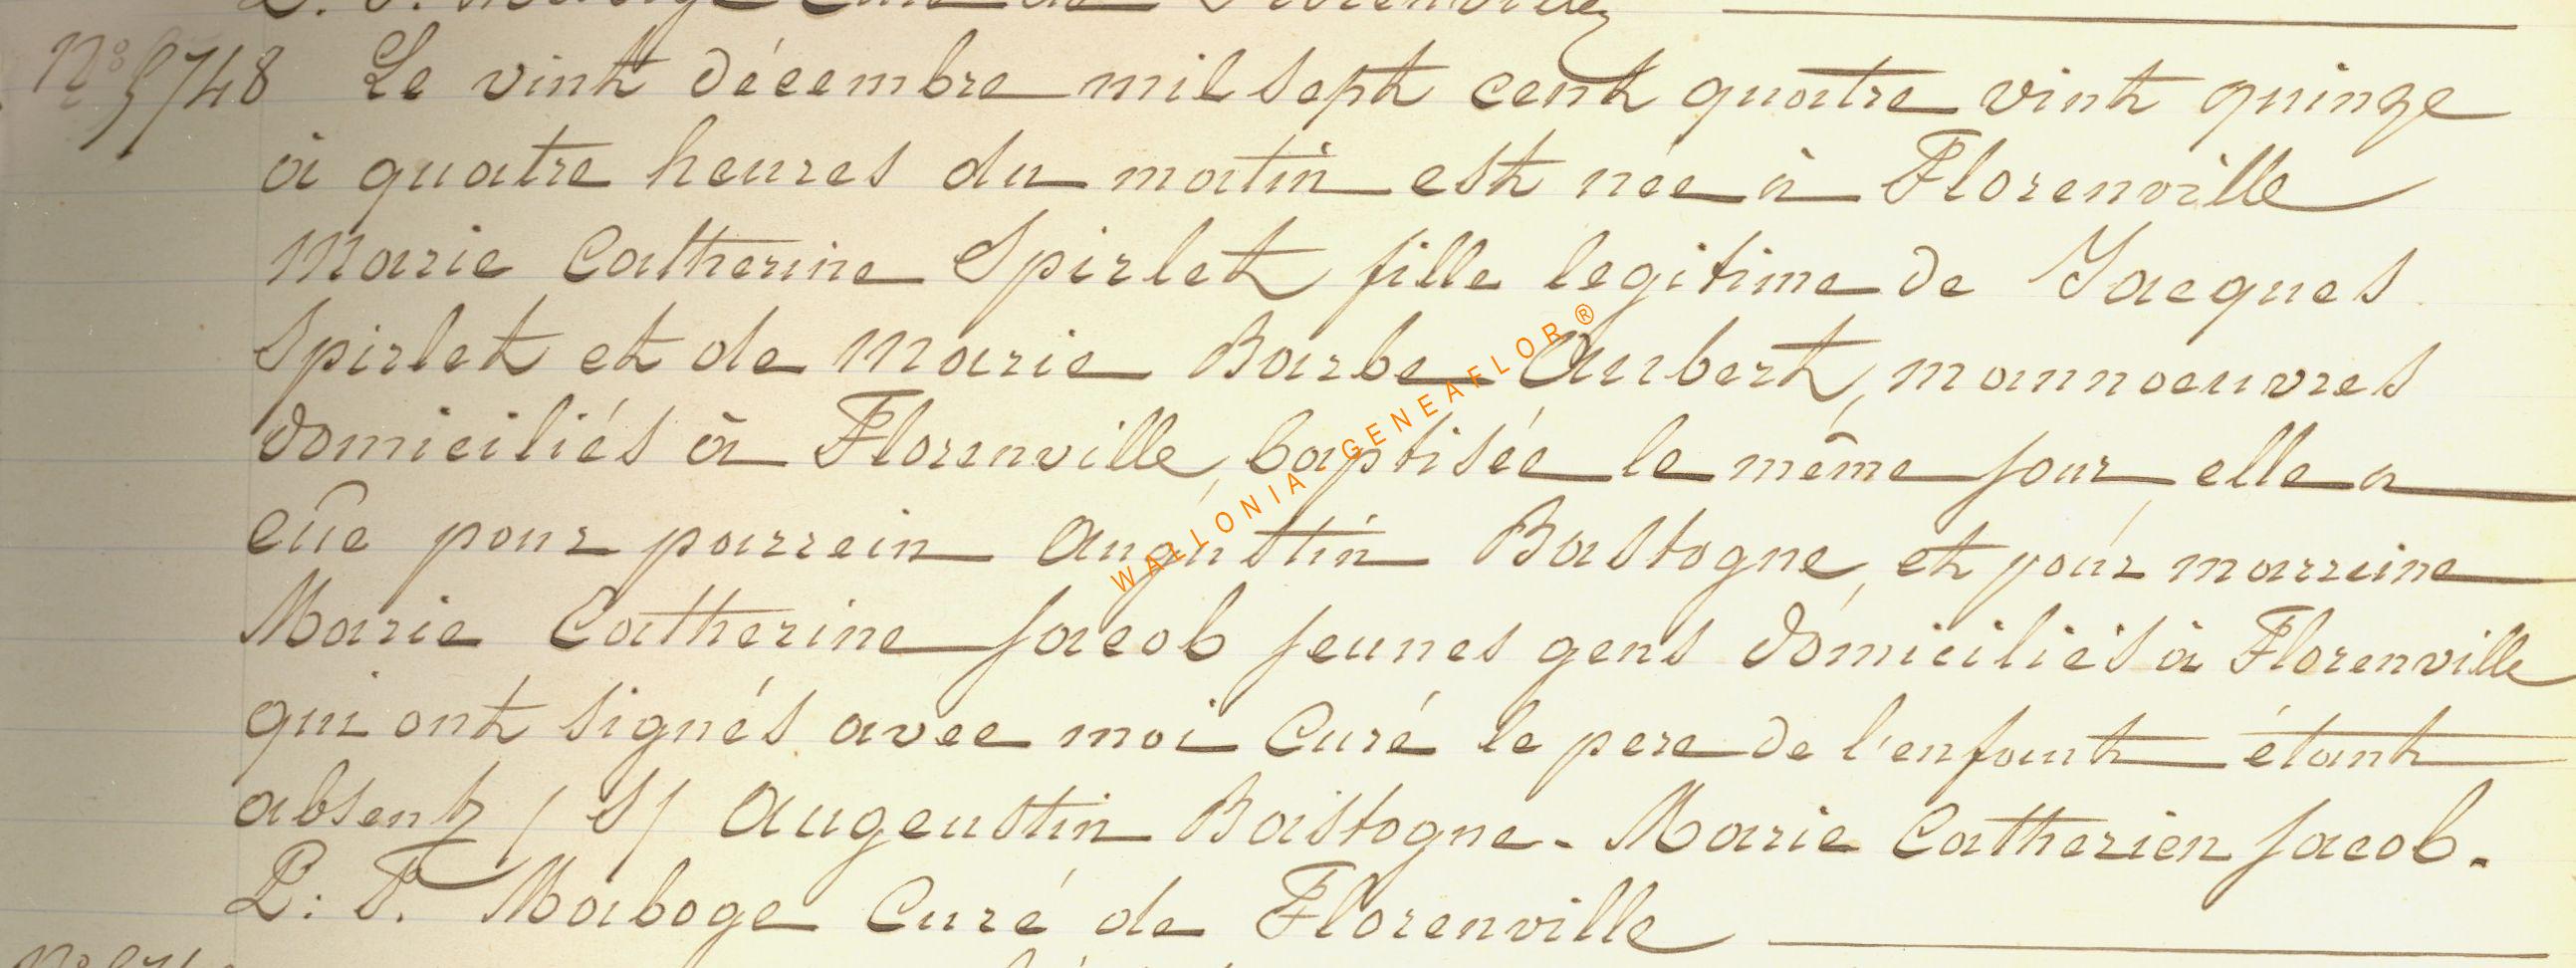 Curé de Florenville
N° 5748 Le vint décembre mil sept cent quatre vint quinze
à quatre heures du matin est née à Florenville
Marie Catherine Spirlet fille legitime de Jacques
Spirlet et de Marie Barbe Aubert, mannoeuvres
domiciliés à Florenville, baptisée le même jour, elle a
eûe pour parrein Augustin Bastogne, et pour marreine
Marie Catherine Jacob jeunes gens domiciliés à Florenville
qui ont signés avec moi Curé le pere de l'enfant étant
absent / S/ Augeustin Bastogne - Marie Catherien Jacob.
L: T. Maboge Curé de Florenville
WALLONIA GENEAFLOR®